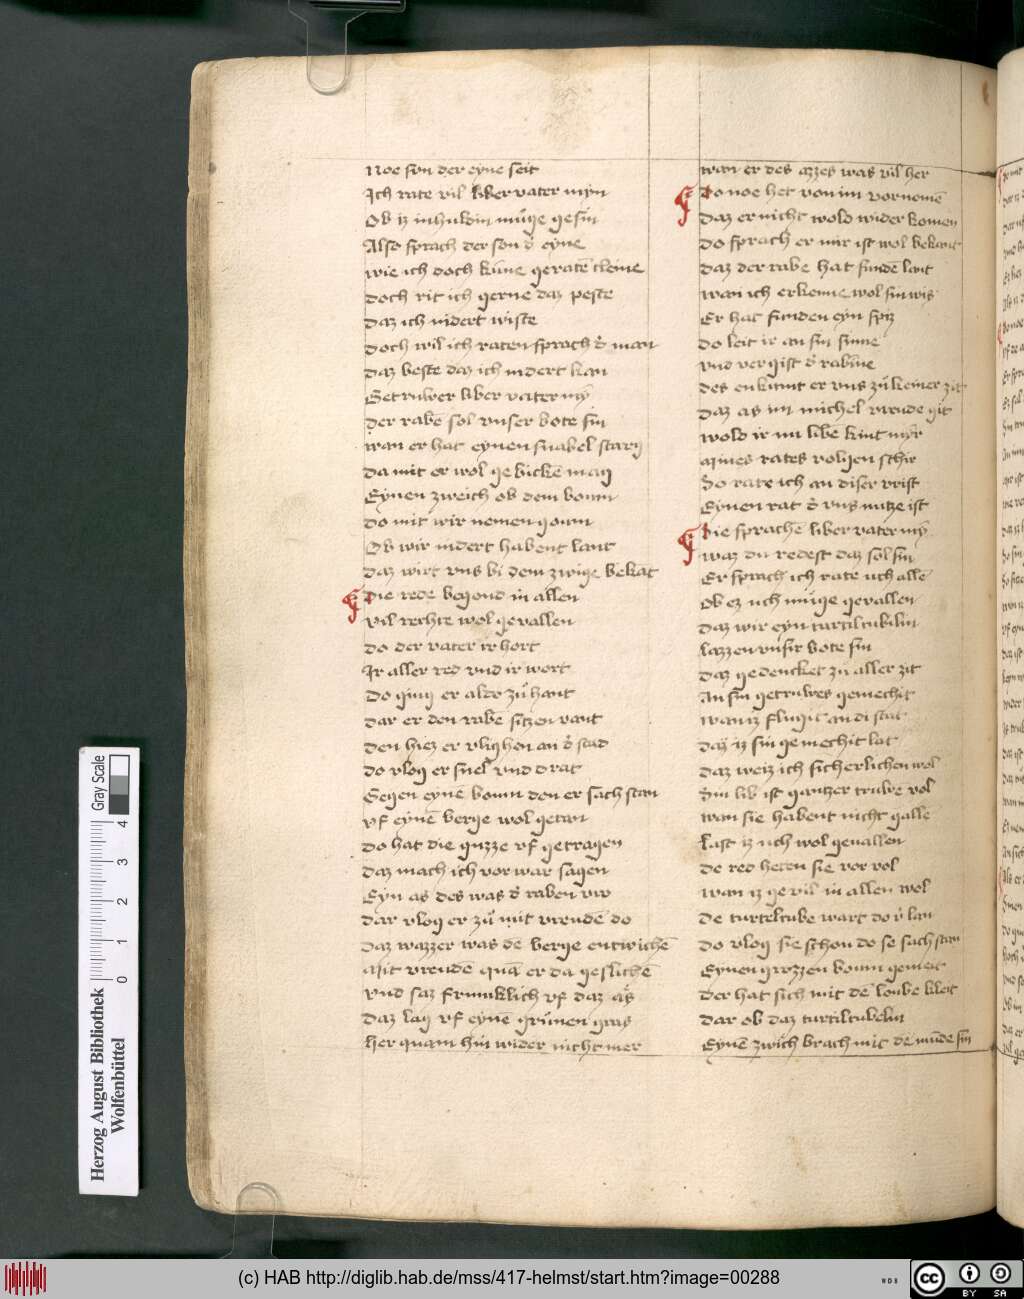 Noe son der eyne seit
Ich rate vil liber vater myn
Ob iz in hulden műge gesin
Also sprach der son d̕ eyne
wie ich doch kűne geratē cleine
Doch rit ich gerne daz peste
Daz ich indert wiste
Doch wil ich raten sprach d̕ man
Daz beste daz ich indert kan
Getruwer liber vater mȳ
Der rabē sol vnser bote sin
wan er hat eynen snabel starg
Da mit er wol gebickē mag
Eynen zweich ob dem boum
Do mit wir nemen goum
Ob wir indert habent lant
Daz wirt vns bi dem zwige bekāt
Die rede begond in allen
vil rechte wol gevallen
Do der vater ir hort
Ir aller red vnd ir wort
Do ging er aldo zů hant
Dar er den rabē sitzen vant
Den hiez er vlighen an d̕ stad
Do vlog er snel vnd drat
Gegen eynē boum den er sach stan
vf eynē berge wol getan
Do hat die guzze vf getragen
Daz mach ich vor war sagen
Eyn as des was d̕ raben vro
Dar vlog er zů mit vreude do
Daz wazzer was dē berge entwichē
Mit vreudē quā er da geslichē
vnd saz frumklich vf daz as
Daz lag vf eynē grűnen gras
her quam hin wider nicht mer
wan er des azzes was vil her
Do noe het von im vornomē
Daz er nicht wold wider komen
Do sprach er mir ist wol bekant
Daz der rabe hat fundē lant
wan ich erkenne wol sin wis
Er hat funden eyn spiz
Do leit ir an sin sinne
vnd vergist d̕ rabīne
Des enkumt er vns zů keiner zit
Daz as im michel vreude git
wold ir nu libē kint myr
Mines rates volgen schir
So rate ich an diser vrist
Eynen rat d̕ vns nutze ist
Die sprachē liber vater mȳ
waz du redest daz sol sin
Er sprach ich rate uch allē
Ob ez uch műge gevallen
Daz wir eyn turtiltubilin
Lazzen vnsir bote sin
Daz gedencket zu aller zit
An sin getruwes gemechit
wan iz flugit an di stat
Daz iz sin gemechit lat
Daz weiz ich sicherlichen wol
Sin lib ist gantzer truwe vol
wan sie habent nicht gallē
Last iz uch wol geuallen
De red heten sie vor vol
wan iz geuil in allen wol
De turteltube wart do v̕ lan
Do vlog sie schon do se sach stan
Eynen grozzen boum gemeit
Der hat sich mit dē loube kleit
Dar ob daz turtiltubelin
Eynē zwich brach mit dē műde sin
Gray Scale
4
3
2
1
0
Herzog August Bibliothek
Wolfenbüttel
(c) HAB http://diglib.hab.de/mss/417-helmst/start.htm?image=00288
WDB
cc
BY
SA